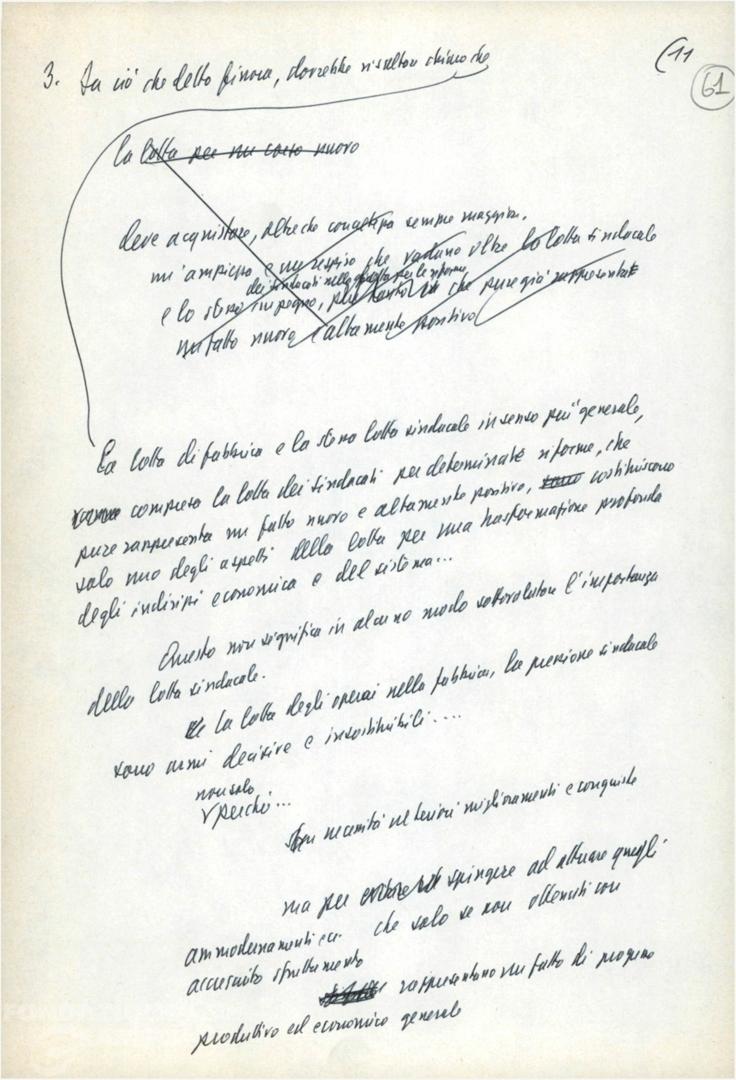 (11
61
3. Da ciò che detto finora, dovrebbe risultare chiaro che
la lotta per un corso nuovo
deve acquistare, oltre che concretezza sempre maggiore,
un'ampiezza e un respiro che vadano oltre la lotta sindacale
dei sindacati nella lotta per le riforme
e lo stesso impegno, che pure già rappresentate
un fatto nuovo e altamente positivo
La lotta di fabbrica e la stessa lotta sindacale in senso più generale,
compresa la lotta dei sindacati per determinate riforme, che
pure rappresenta un fatto nuovo e altamente positivo, sono costituiscono
solo uno degli aspetti della lotta per una trasformazione profonda
degli indirizzi economici e del sistema...
Questo non significa in alcuno modo sottovalutare l'importanza
della lotta sindacale.
La lotta degli operai nella fabbrica, la pressione sindacale
sono armi decisive e insostituibili....
non solo
perché...
necessità ulteriori miglioramenti e conquiste
ma per spingere ad attuare quegli
ammodernamenti ecc. che solo se non ottenuti con
accresciuto sfruttamento
rappresentano un fatto di progresso
produttivo ed economico generale